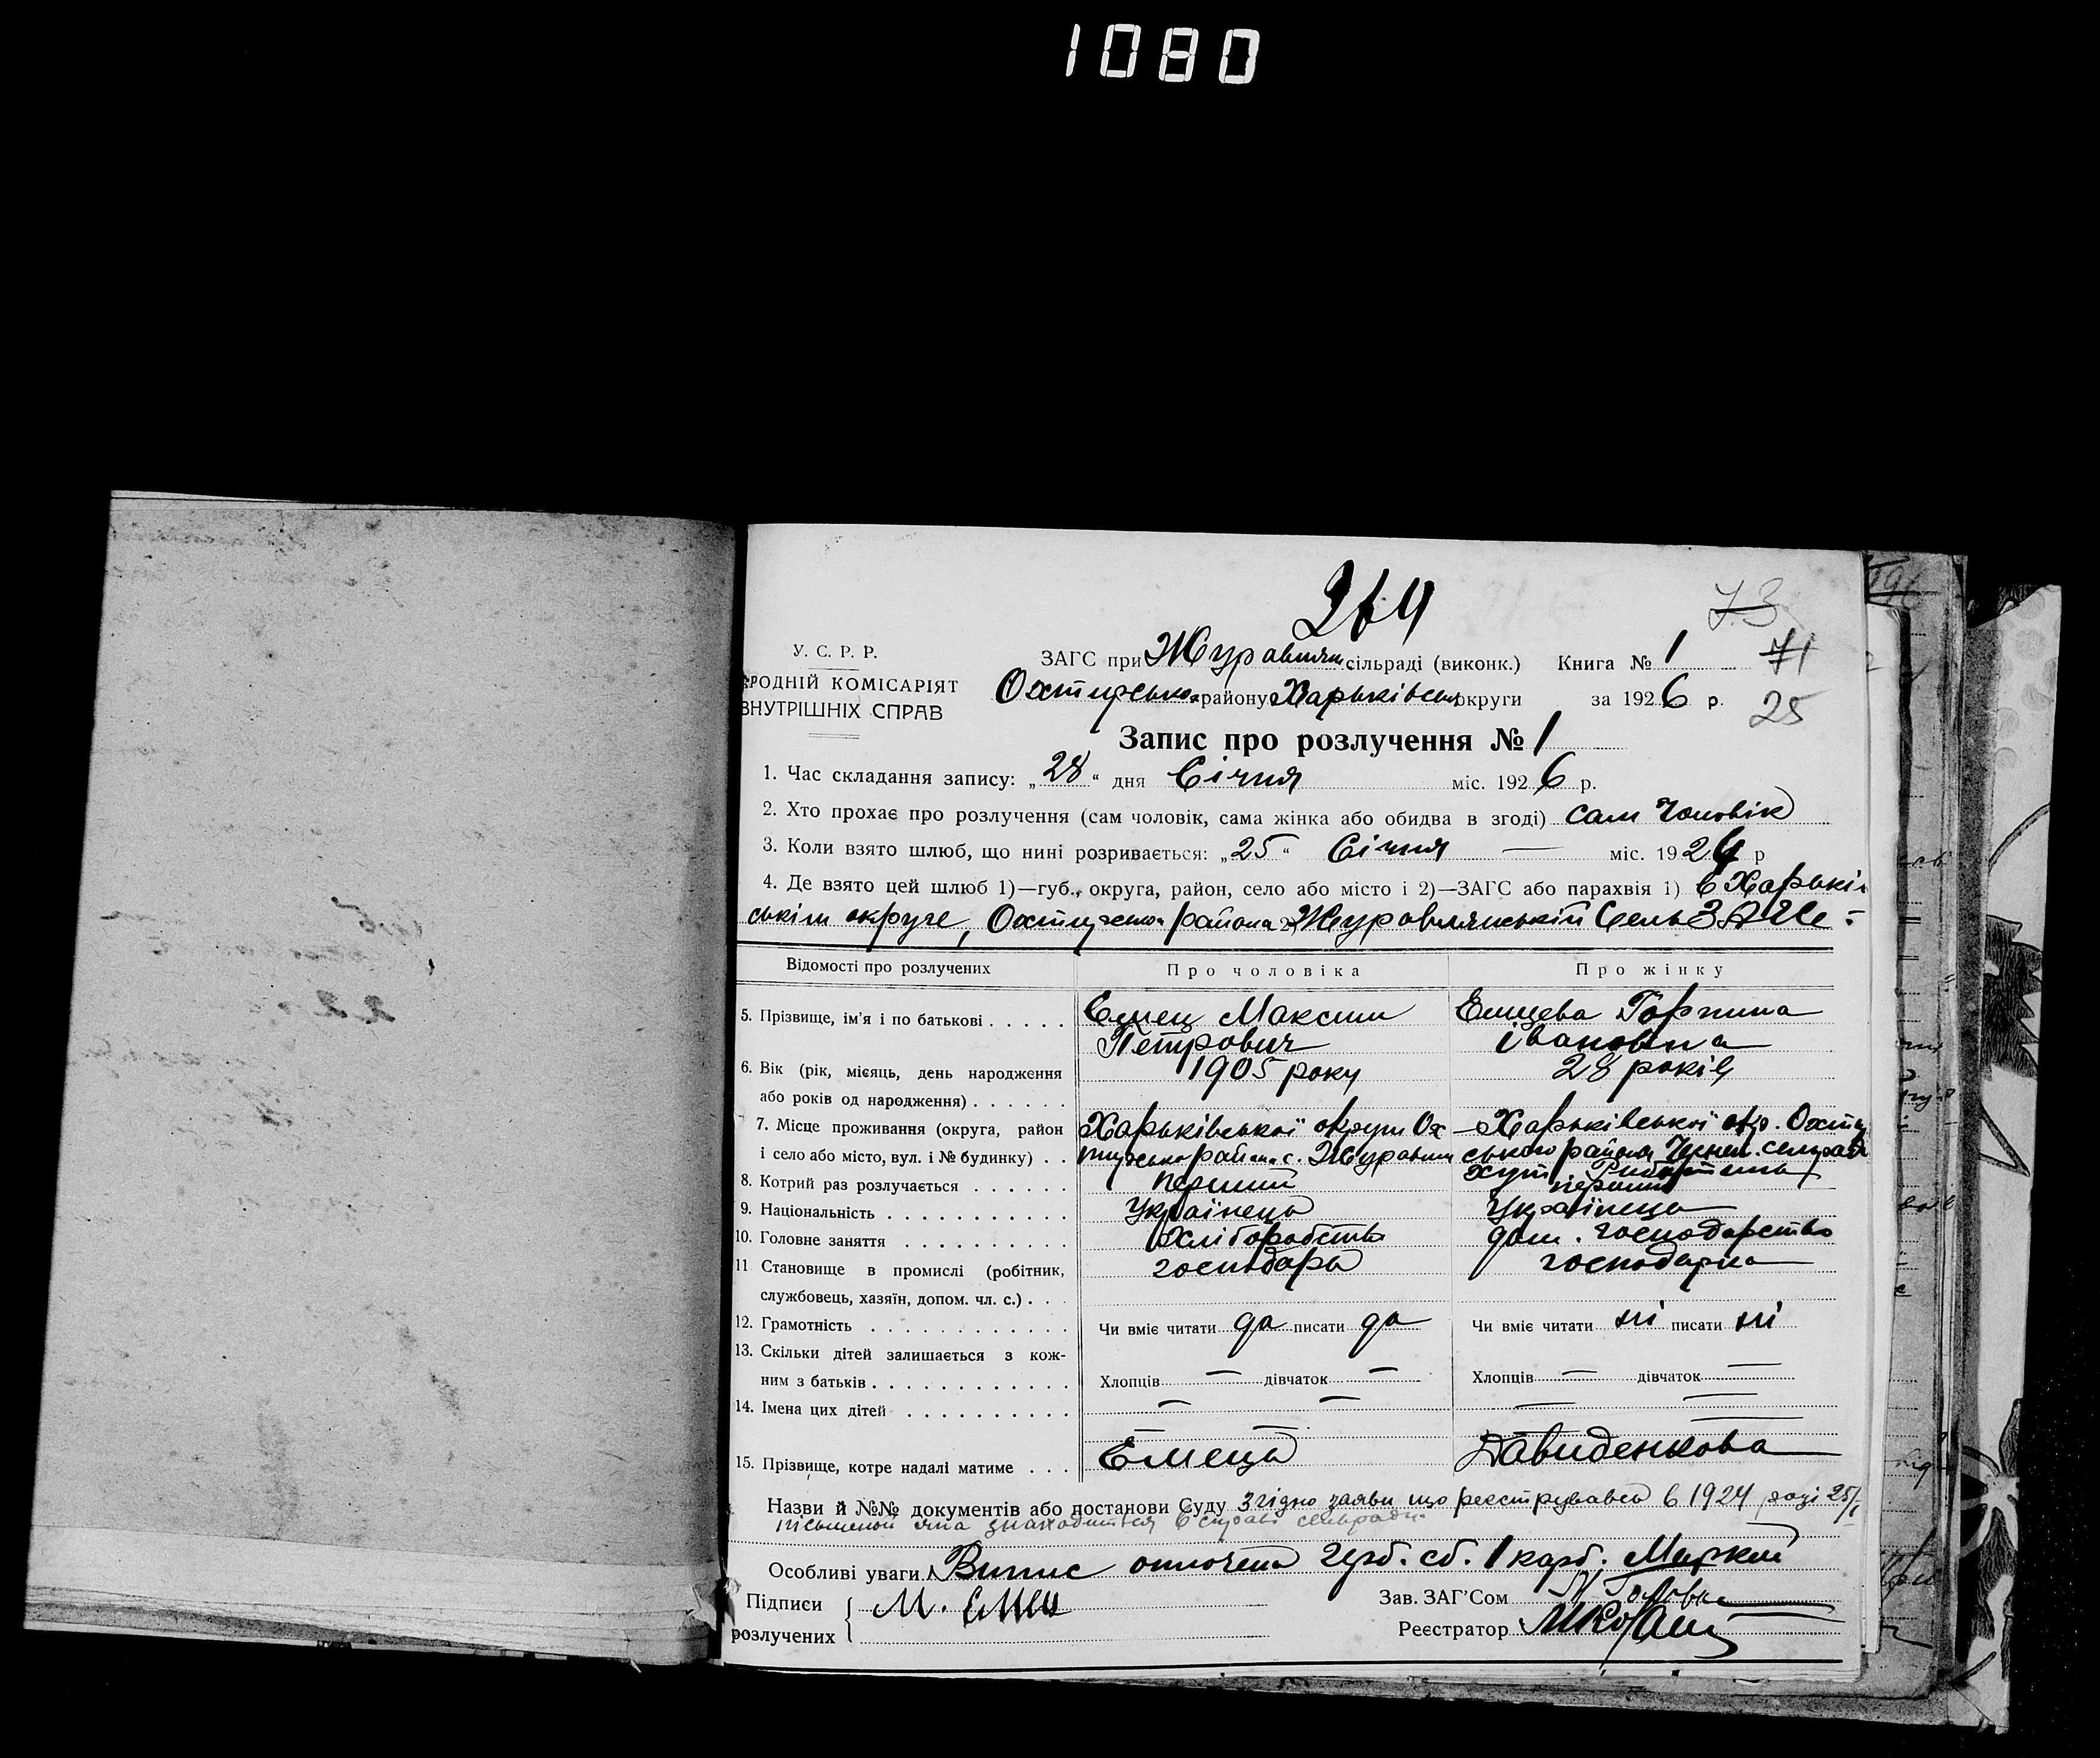 1080
264
73
У. С. Р. Р.
РОДНІЙ КОМІСАРІЯТ
ВНУТРІШНІХ СПРАВ
ЗАГС при Журавлян сільраді (виконк.) Книга № 1
71
Охтирсько району Харьківськ округи за 1926 р.
25
Запис про розлучення № 1
1. Час складання запису: „28“ дня Січня міс. 1926 р.
2. Хто прохає про розлучення (сам чоловік, сама жінка або обидва в згоді) сам Чоловік
3. Коли взято шлюб, що нині розривається: „25“ Січня — міс. 1924 р
4. Де взято цей шлюб 1)—губ., округа, район, село або місто і 2)—ЗАГС або парахвія 1) в Харькі
ськім окрузе, Охтирсько района 2) Журавлянський Сель ЗАГСе
Відомості про розлучених
Про чоловіка
Про жінку
5. Прізвище, ім'я і по батькові . . . . .
Емец Максим
Петрович
Емцева Горпина
івановна
6. Вік (рік, місяць, день народження
або років од народження) . . . . . .
1905 року
28 років
7. Місце проживання (округа, район
і село або місто, вул. і № будинку) . .
Харьківської округи Ох
тирсько район с. Журавлян
Харьківської окр. Охти
ського района сельрад
хут
8. Котрий раз розлучається . . . . . .
перший
перший
9. Національність . . . . . . . . . . .
Українець
Українець
10. Головне заняття . . . . . . . . . .
Хліборобство
дом. господарство
11 Становище в промислі (робітник,
службовець, хазяїн, допом. чл. с.) . . .
господарь
господарка
12. Грамотність . . . . . . . . . . . .
Чи вміє читати да писати да
Чи вміє читати ні писати ні
13. Скільки дітей залишається з кож-
ним з батьків . . . . . . . . . . . .
Хлопців — дівчаток —
Хлопців — дівчаток —
14. Імена цих дітей . . . . . . . . . .
— —
— —
15. Прізвище, котре надалі матиме . . .
Емець
Давиденкова
Назви й №№ документів або постанови Суду Згідно заяви що реєструвався в 1924 році 25/I
письменой яка знаходиться в справі сельради.
Особливі уваги. Випис оплочена герб. сб. 1 карб. Марки
Підписи
розлучених
М. Емец
Зав. ЗАГ'Сом
Реєстратор